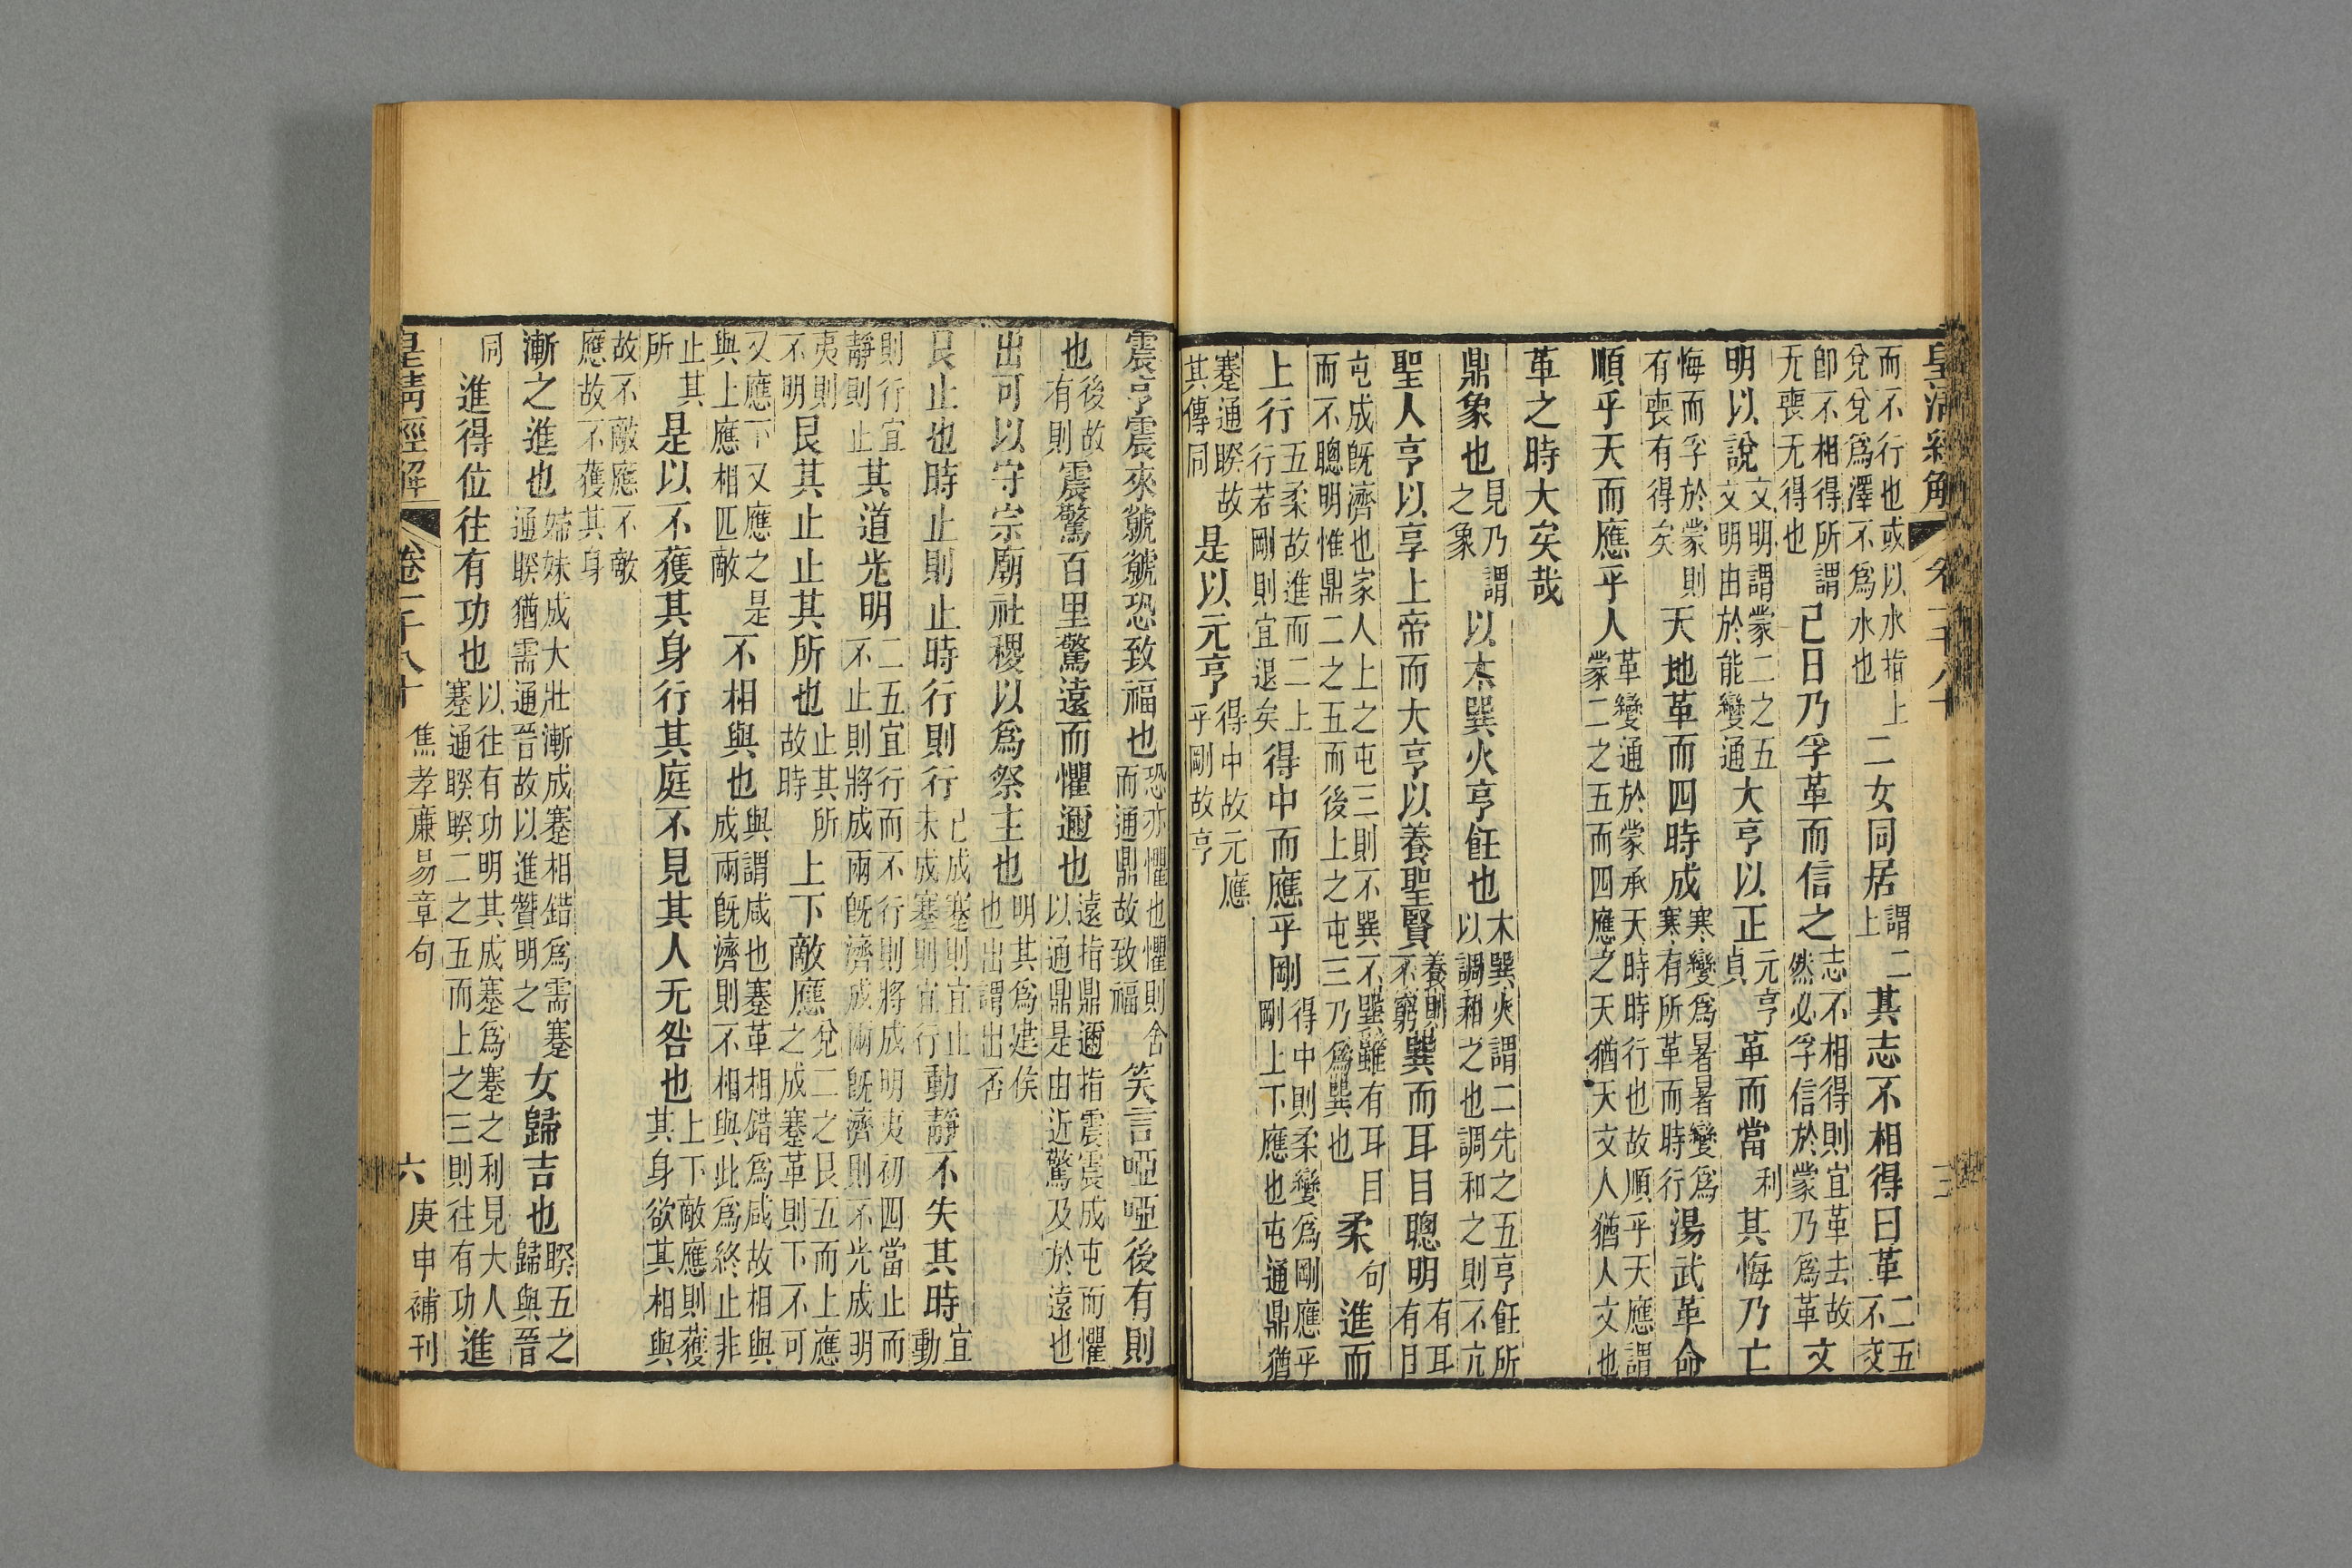 皇清經解
而不行也或以水指上兌兌爲澤不爲水也二女同居謂二上其志不相得曰革二五不交
卽不相得所謂无喪无得也己日乃孚革而信之志不相得則宜革去故然必孚信於蒙乃爲革文
明以說文明謂蒙二之五文明由於能變通大亨以正元亨貞革而當利其悔乃亡
悔而孚於蒙則有喪有得矣天地革而四時成寒變爲暑暑變爲寒有所革而時行湯武革命
順乎天而應乎人革變通於蒙承天時時行也故順乎天應謂蒙二之五而四應之天猶天文人猶人文也
革之時大矣哉
鼎象也見乃謂之象以木巽火亨飪也木巽火謂二先之五亨飪所以調和之也調和之則不亢
聖人亨以享上帝而大亨以養聖賢養則不窮巽而耳目聰明有耳有目
屯成旣濟也家人上之屯三則不巽不巽雖有耳目而不聰明惟鼎二之五而後上之屯三乃爲巽也柔句進而
上行五柔故進而二上行若剛則宜退矣得中而應乎剛得中則柔變爲剛應乎剛上下應也屯通鼎猶
蹇通睽故其傳同是以元亨得中故元應乎剛故亨
震亨震來虩虩恐致福也恐亦懼也懼則舍而通鼎故致福笑言啞啞後有則
也後故有則震驚百里驚遠而懼邇也遠指鼎邇指震震成屯而懼以通鼎是由近驚及於遠也
出可以守宗廟社稷以爲祭主也明其爲建侯也出謂出否
艮止也時止則止時行則行已成蹇則宜止未成蹇則宜行動靜不失其時宜動
則行宜靜則止其道光明二五宜行而不行則將成明夷初四當止而不止則將成兩旣濟成兩旣濟則不光成明
夷則不明艮其止止其所也止其所故時上下敵應兌二之艮五而上應之成蹇革則下不可
又應下又應之是與上應相匹敵不相與也與謂咸也蹇革相錯爲咸故相與成兩旣濟則不相與此爲終止非
止其所是以不獲其身行其庭不見其人无咎也上下敵應則獲其身欲其相與
故不敵應不敵應故不獲其身
漸之進也歸妹成大壯漸成蹇相錯爲需蹇通睽猶需通晉故以進贊明之女歸吉也睽五之歸與晉
同進得位往有功也以往有功明其成蹇爲蹇之利見大人蹇通睽睽二之五而上之三則往有功進
皇清經解 卷一千八十 焦孝廉易章句 六 庚申補刊